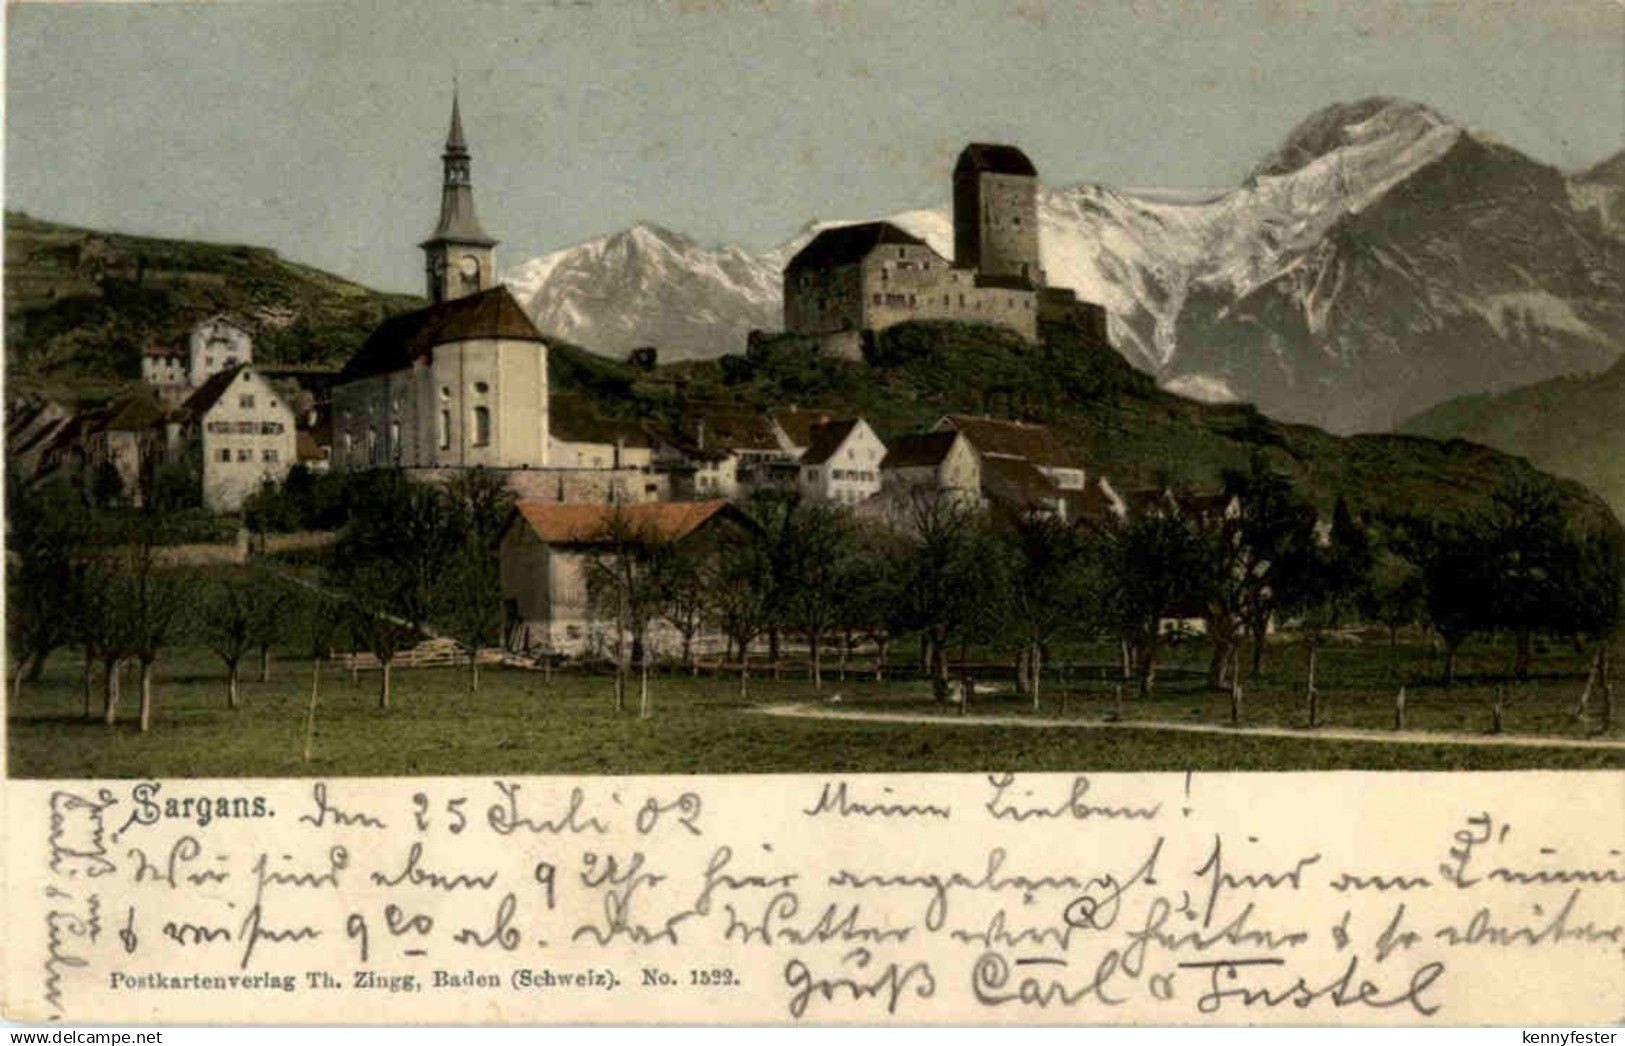 Sargans. den 25 Juli 02 Meine Lieben!
Wir sind eben 9 Uhr hier angelangt, sind am
& reisen 9 ab. Das Wetter wird heiter & so weiter.
Gruß Carl &
Postkartenverlag Th. Zingg, Baden (Schweiz). No. 1522.
Gruß an
Carli &
delcampe.net
kennyfester